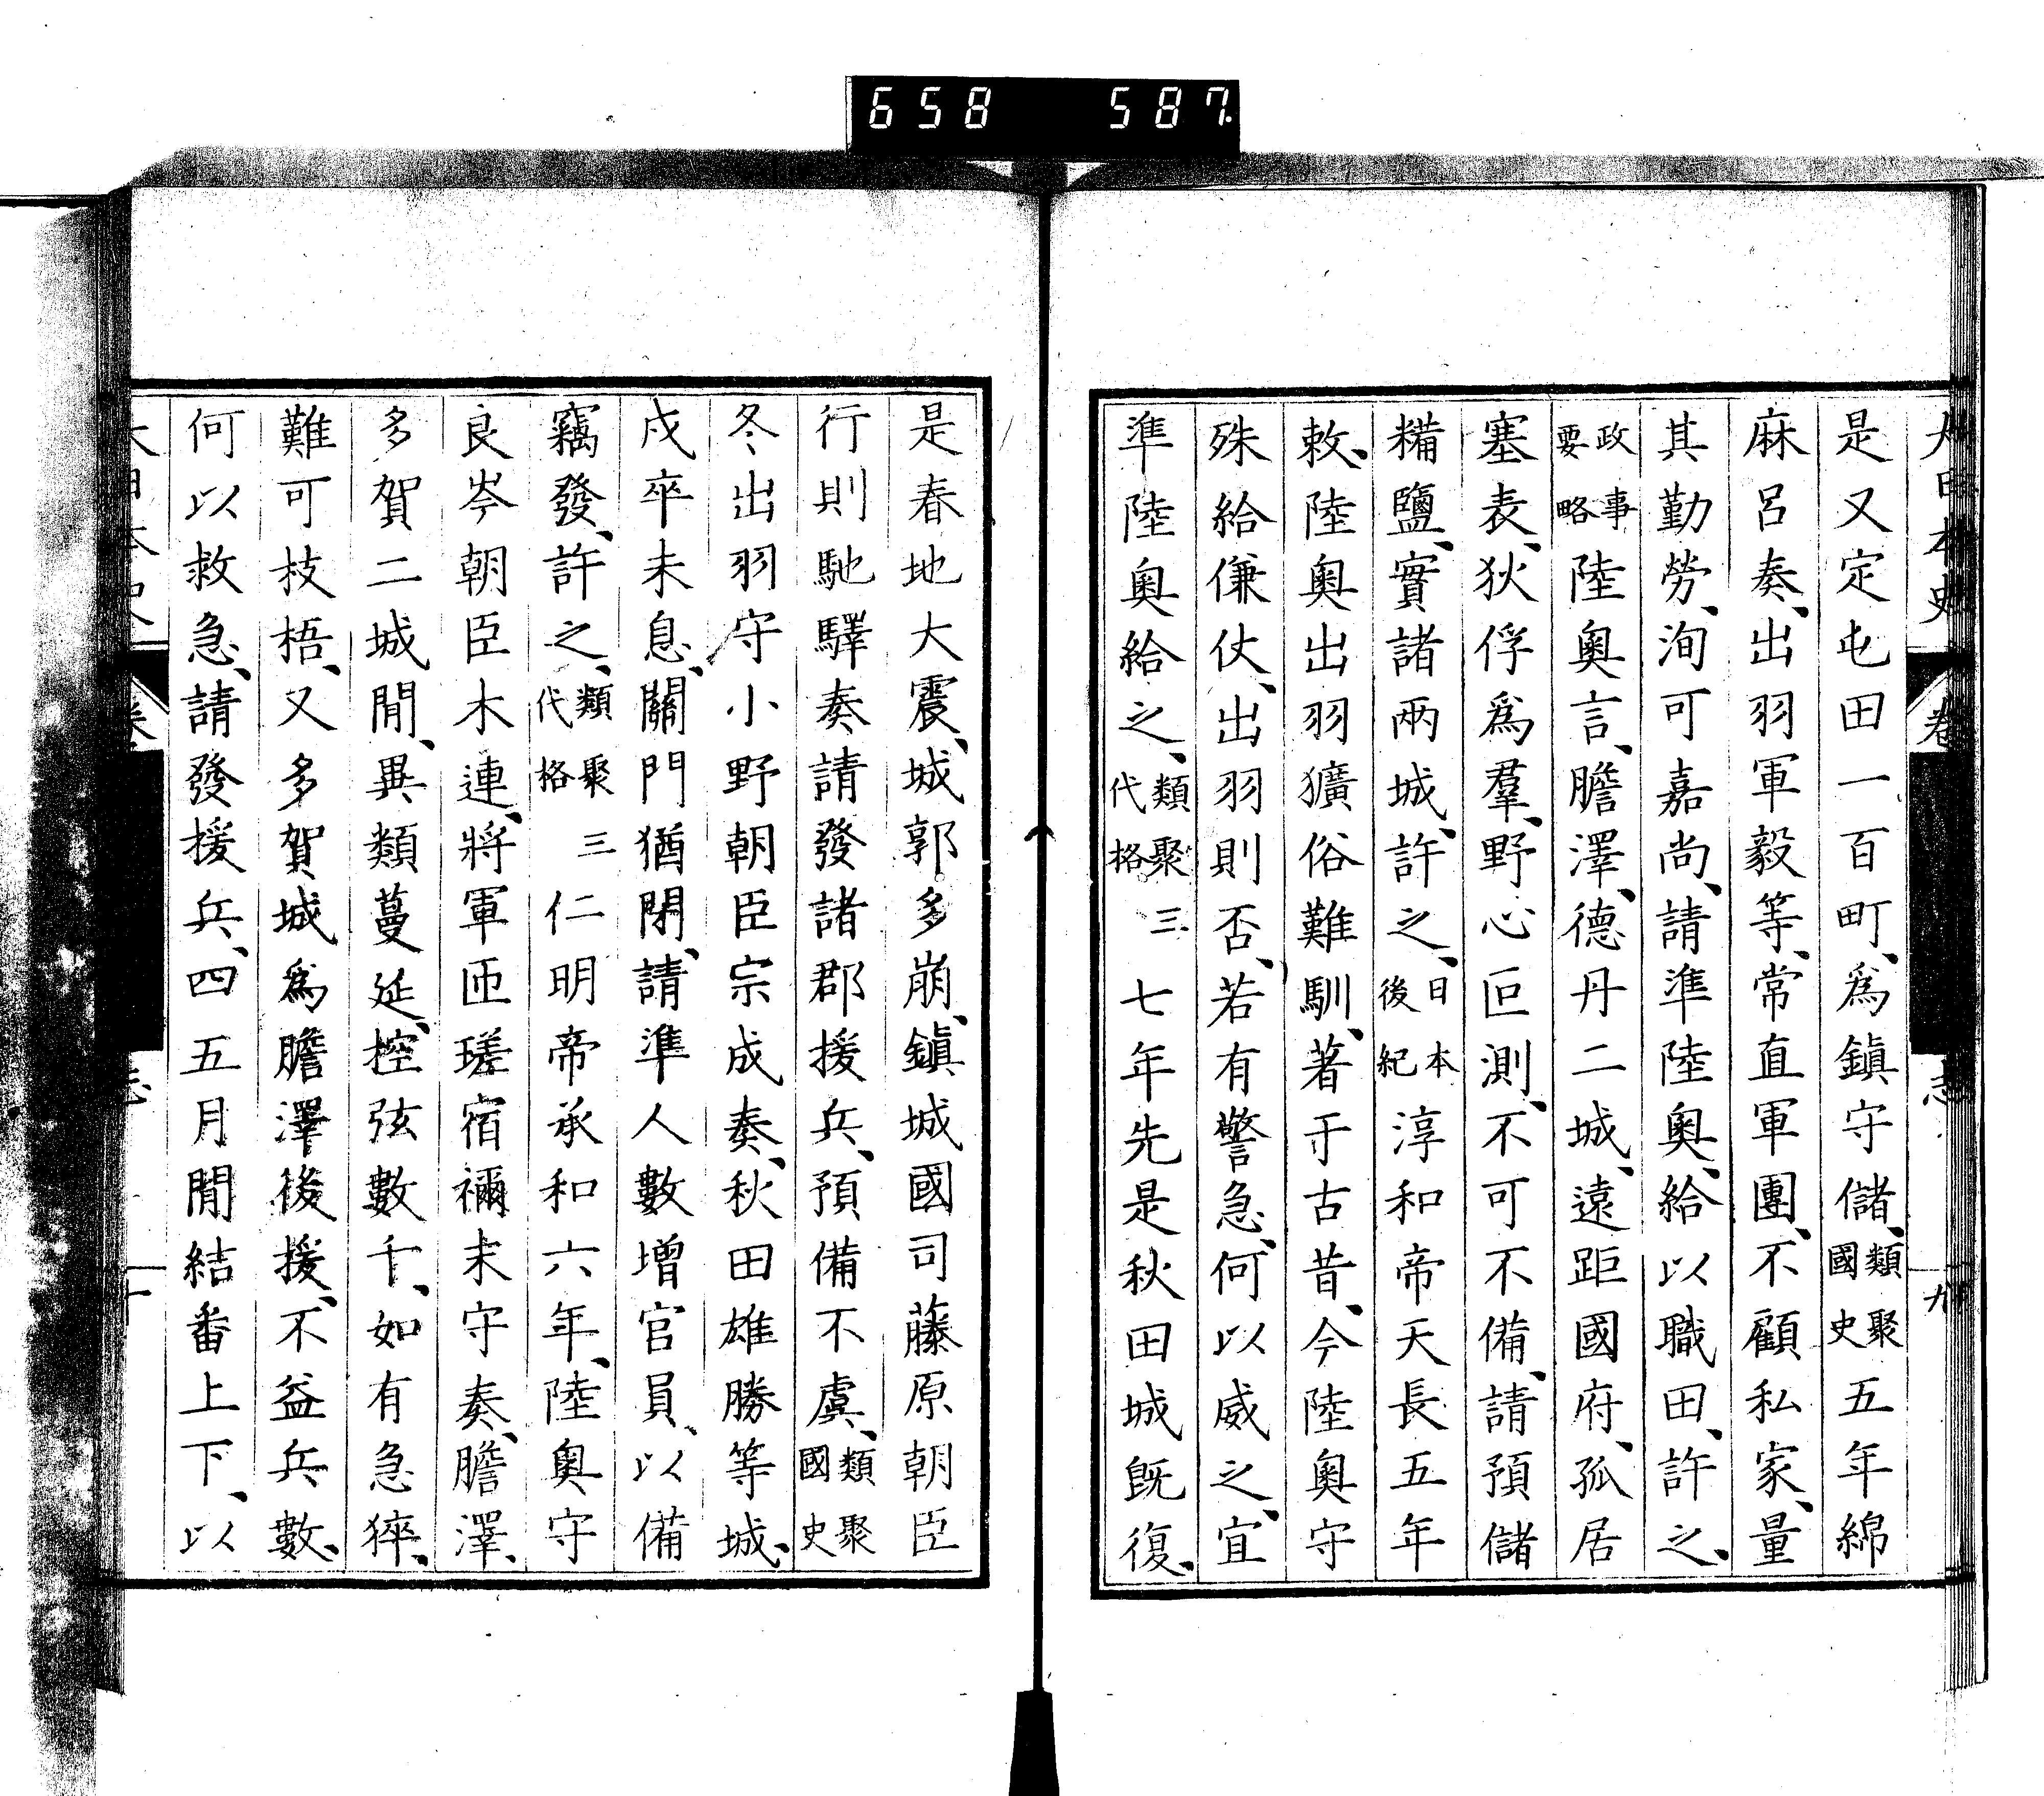 658 587
大日本史 卷 志 九
是又定屯田一百町、爲鎭守儲、類聚國史五年綿
麻呂奏、出羽軍毅等、常直軍團、不顧私家、量
其勤勞、洵可嘉尚、請準陸奧、給以職田、許之、
政事要略陸奧言、膽澤、德丹二城、遠距國府、孤居
塞表、狄俘爲羣、野心叵測、不可不備、請預儲
糒鹽、實諸兩城、許之、日本後紀淳和帝天長五年
敕、陸奧出羽獷俗難馴、著于古昔、今陸奧守
殊給傔仗、出羽則否、若有警急、何以威之、宜
準陸奧給之、類聚三代格七年先是秋田城旣復、
是春地大震、城郭多崩、鎭城國司藤原朝臣
行則馳驛奏請發諸郡援兵、預備不虞、類聚國史
冬出羽守小野朝臣宗成奏、秋田雄勝等城、
戍卒未息、關門猶閉、請準人數增官員、以備
竊發、許之、類聚三代格仁明帝承和六年、陸奧守
良岑朝臣木連、將軍匝瑳宿禰末守奏、膽澤、
多賀二城閒、異類蔓延、控弦數千、如有急猝、
難可枝梧、又多賀城爲膽澤後援、不益兵數、
何以救急、請發援兵、四五月閒結番上下、以
大日本史 卷 志 十